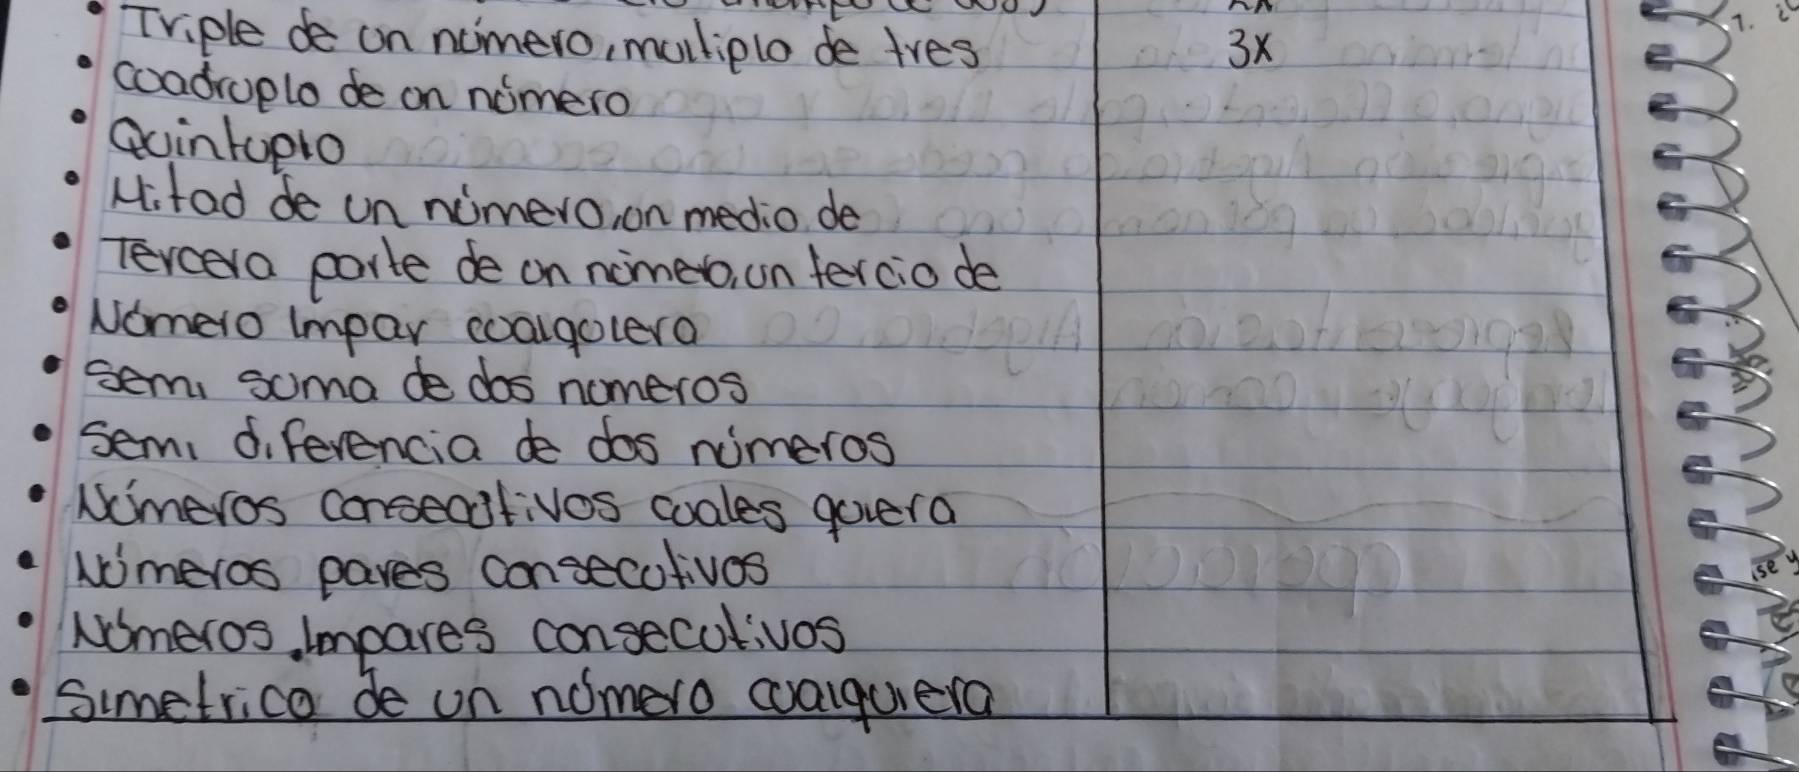 • Triple de un número, multiplo de tres 3x
• cuadruplo de un número
• Quintuplo
• Mitad de un número, un medio de
• Tercera parte de un número, un tercio de
• Número impar cualquiera
• Semi suma de dos numeros
• Semi diferencia de dos números
• Números consecutivos cuales quiera
• Números pares consecutivos
• Números impares consecutivos
• Simetrico de un número cualquiera